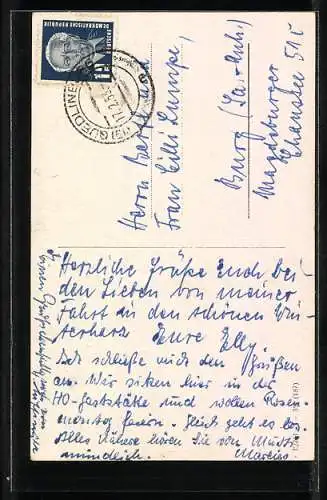 DEUTSCHE
DEMOKRATISCHE REPUBLIK
12
(19b) QUEDLINBURG
11.2.53
Herrn Bert und
Frau Cilli Lumpe,
Burg (Sa.-Anh.)
Magdeburger
Chaussee 51c
Herzliche Grüße Euch Bei-
den Lieben von meiner
Fahrt in den schönen Win-
terharz Eure Elly.
Ich schließe mich den Grüßen
an. Wir sitzen hier in der
HO-Gaststätte und wollen Rosen-
montag feiern. Gleich geht es los.
Alles Nähere hören Sie von Mutti
mündlich.
einen Gruß